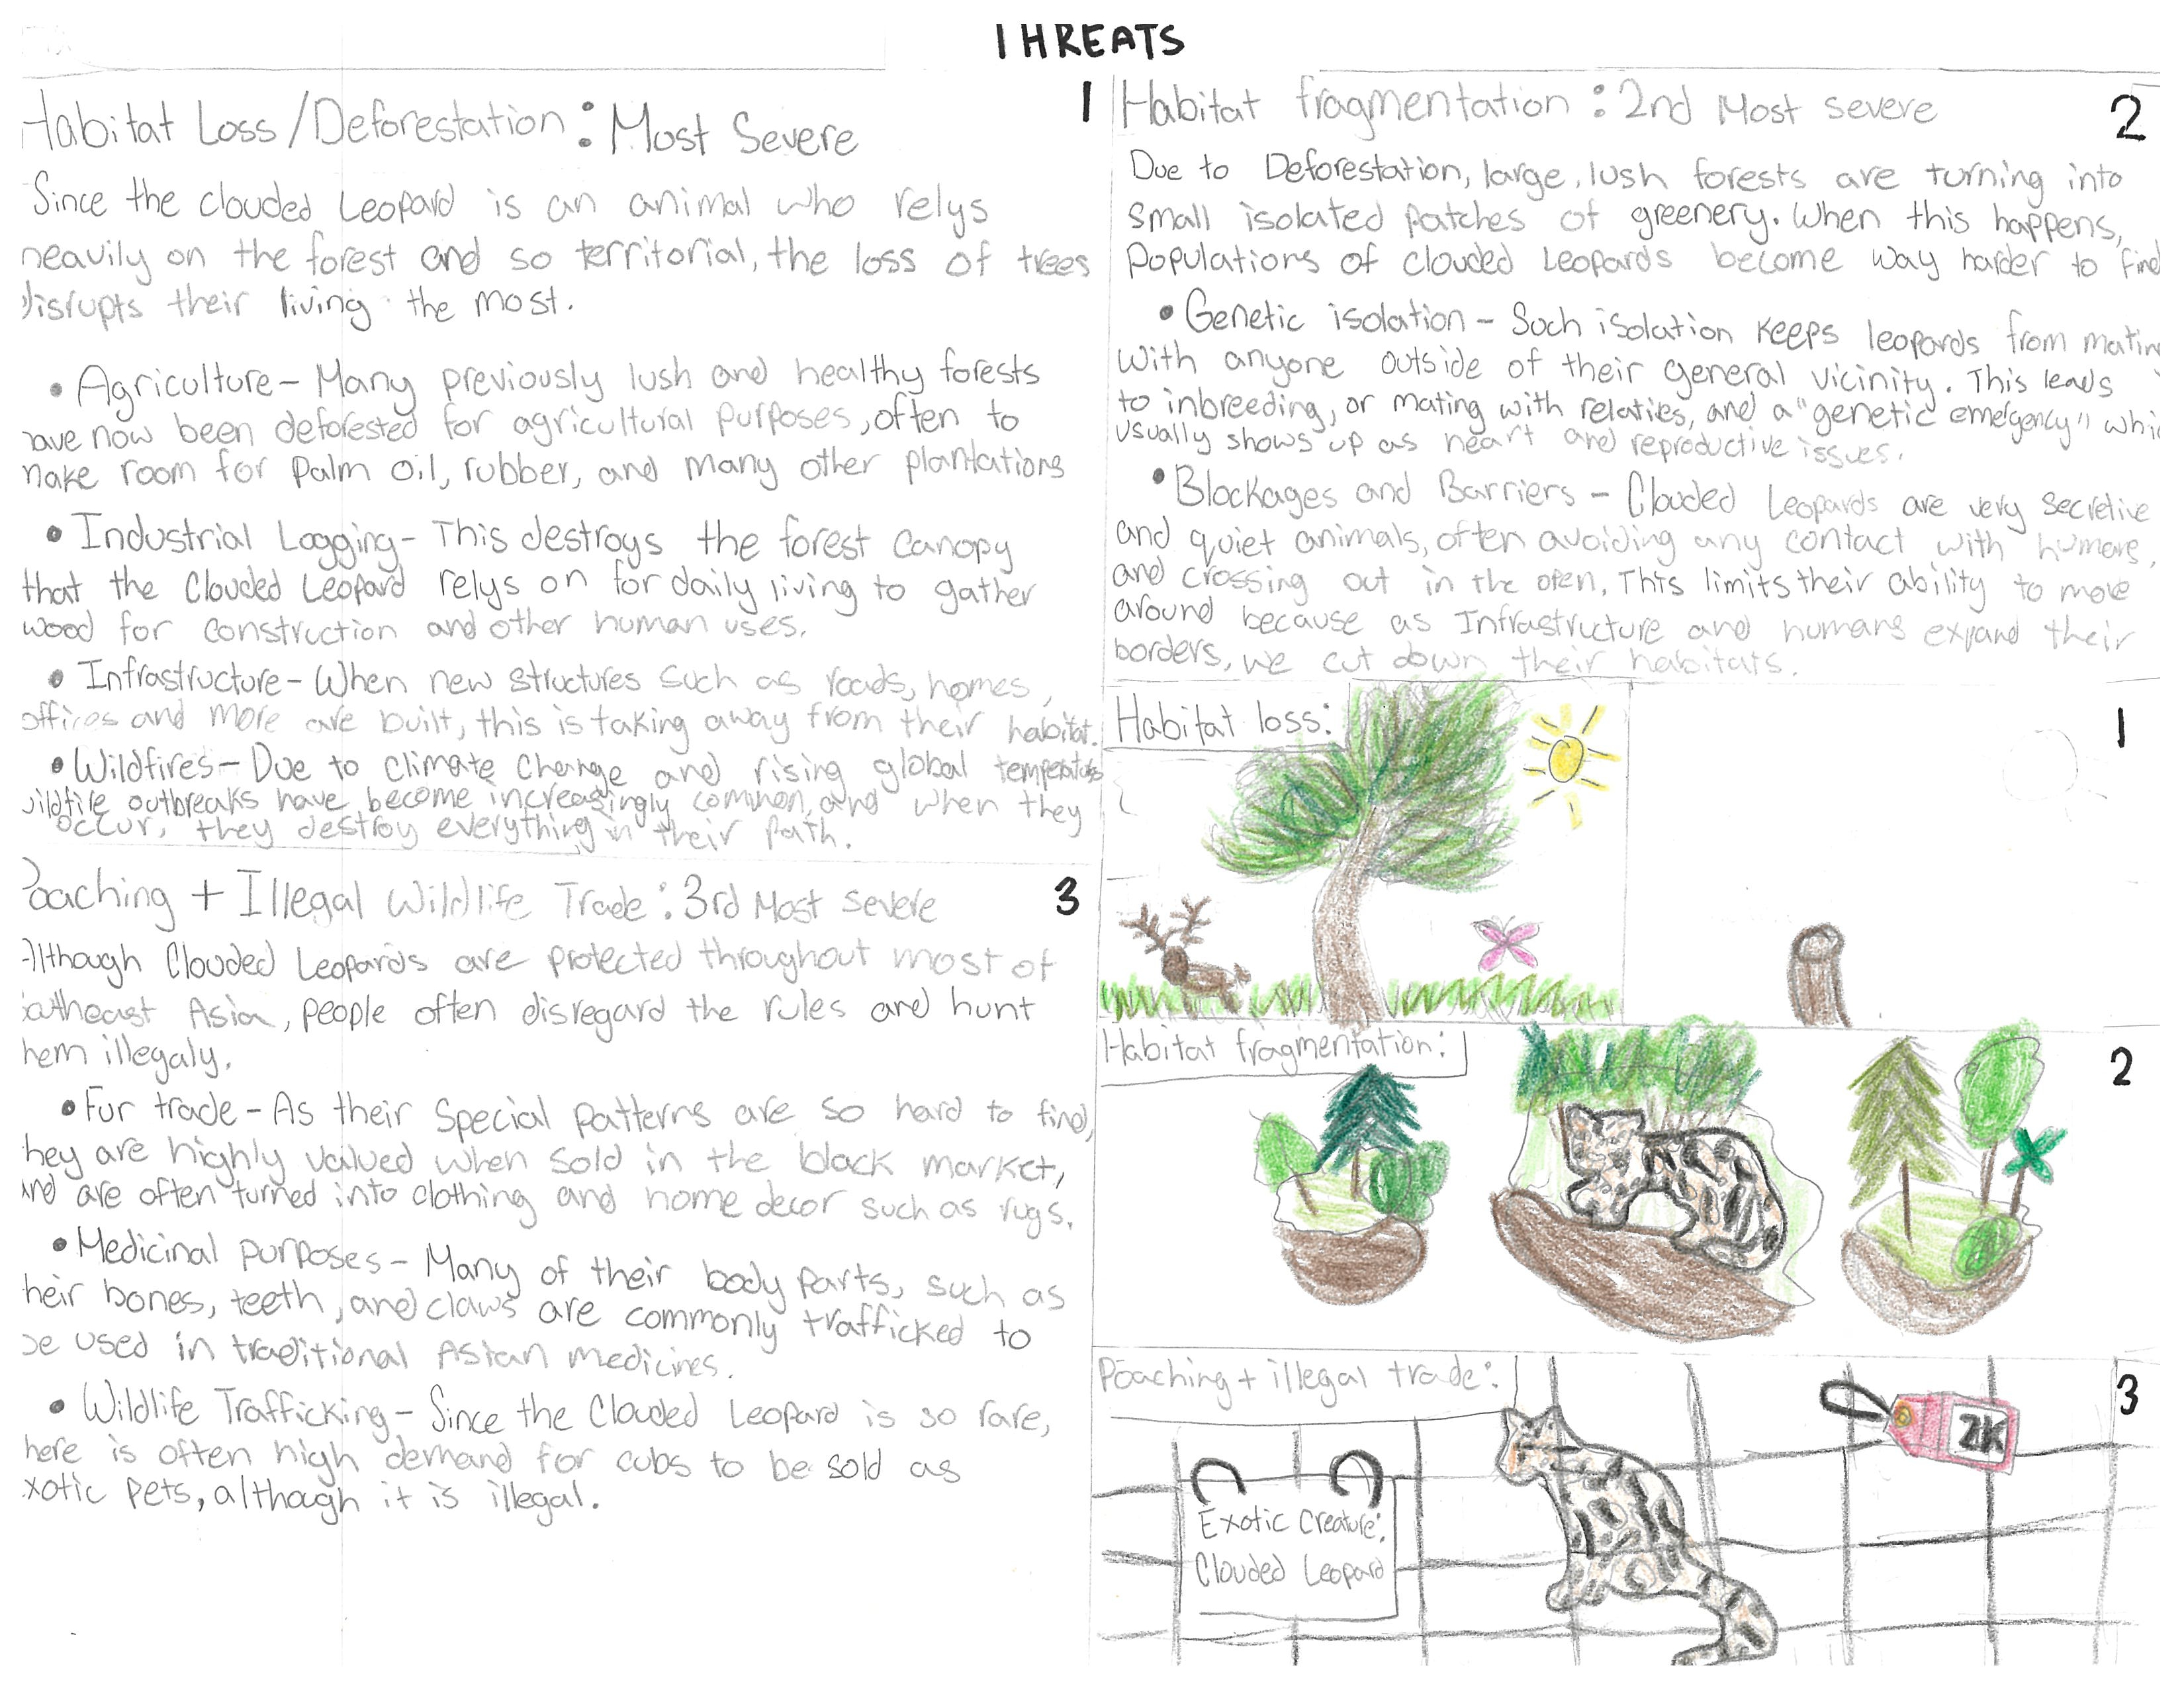 THREATS
Habitat Loss/Deforestation: Most Severe
1
Since the clouded Leopard is an animal who relys
heavily on the forest and so territorial, the loss of trees
disrupts their living the most.
• Agriculture- Many previously lush and healthy forests
have now been deforested for agricultural purposes, often to
make room for Palm oil, rubber, and many other plantations
• Industrial Logging- This destroys the forest canopy
that the Clouded Leopard relys on for daily living to gather
wood for construction and other human uses.
• Infrastructure- When new structures such as roads, homes,
offices and more are built, this is taking away from their habitat.
• Wildfires- Due to Climate Change and rising global temperatures
wildfire outbreaks have become increasingly common, and when they
occur, they destroy everything in their Path.
Poaching + Illegal Wildlife Trade: 3rd Most severe
3
Although Clouded Leopards are protected throughout most of
Southeast Asia, people often disregard the rules and hunt
them illegaly.
• Fur trade- As their Special patterns are so hard to find,
they are highly valued when sold in the black market,
and are often turned into clothing and home decor such as rugs.
• Medicinal purposes- Many of their body parts, such as
their bones, teeth, and claws are commonly trafficked to
be used in traditional Asian medicines.
• Wildlife Trafficking- Since the Clouded Leopard is so rare,
there is often high demand for cubs to be sold as
exotic pets, although it is illegal.
Habitat fragmentation: 2nd Most severe
2
Due to Deforestation, large, lush forests are turning into
small isolated patches of greenery. When this happens,
Populations of clouded Leopards become way harder to find
• Genetic isolation- Such isolation keeps leopards from mating
with anyone outside of their general vicinity. This leads
to inbreeding, or mating with relaties, and a "genetic emergency" whi
usually shows up as heart and reproductive issues.
• Blockages and Barriers- Clouded Leopards are very secretive
and quiet animals, often avoiding any contact with humans,
and crossing out in the open. This limits their ability to move
around because as Infrastructure and humans expand their
borders, we cut down their habitats.
Habitat loss:
1
Habitat fragmentation:
2
Poaching + illegal trade:
3
2K
Exotic Creature:
Clouded Leopard